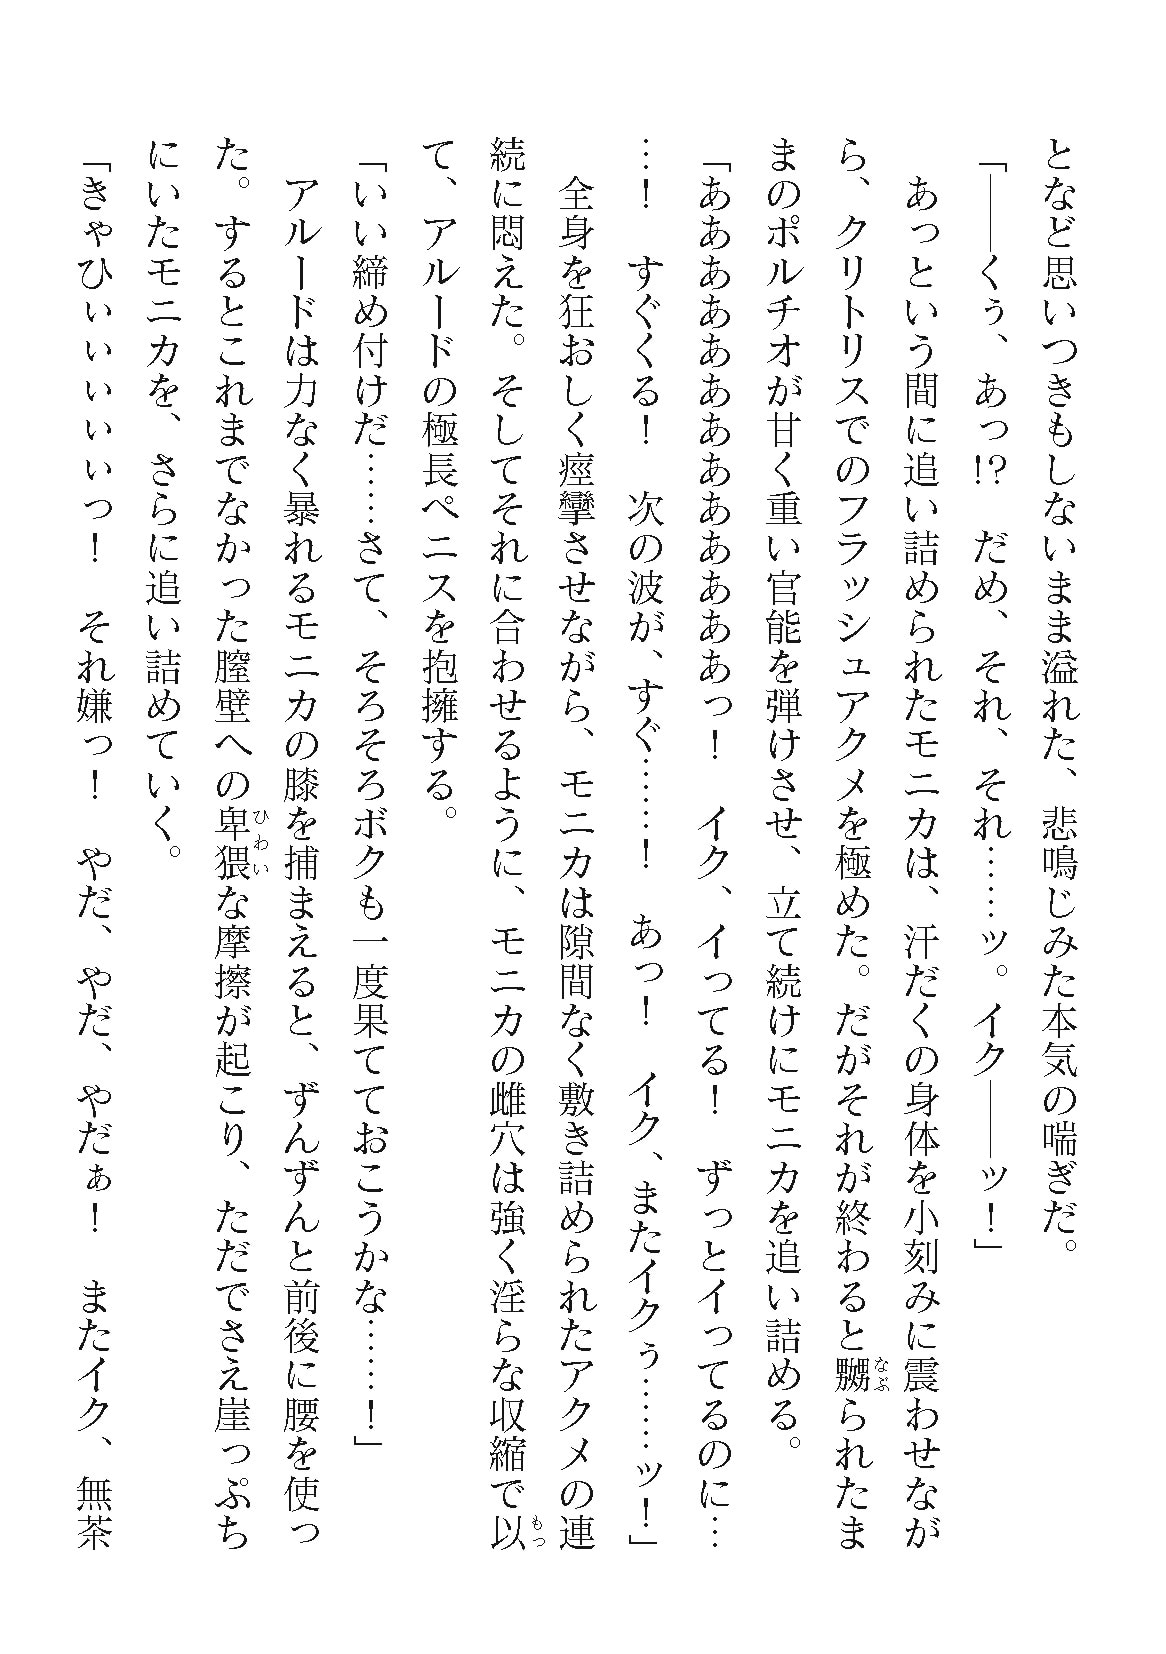 となど思いつきもしないまま溢れた、悲鳴じみた本気の喘ぎだ。
「――くぅ、あっ!?　だめ、それ、それ……ッ。イク――ッ！」
　あっという間に追い詰められたモニカは、汗だくの身体を小刻みに震わせなが
なぶ
ら、クリトリスでのフラッシュアクメを極めた。だがそれが終わると嬲られたま
まのポルチオが甘く重い官能を弾けさせ、立て続けにモニカを追い詰める。
「あああああああああああああっ！　イク、イってる！　ずっとイってるのに…
…！　すぐくる！　次の波が、すぐ……！　あっ！　イク、またイクぅ……ッ！」
　全身を狂おしく痙攣させながら、モニカは隙間なく敷き詰められたアクメの連
もつ
続に悶えた。そしてそれに合わせるように、モニカの雌穴は強く淫らな収縮で以
て、アルードの極長ペニスを抱擁する。
「いい締め付けだ……さて、そろそろボクも一度果てておこうかな……！」
　アルードは力なく暴れるモニカの膝を捕まえると、ずんずんと前後に腰を使っ
ひわい
た。するとこれまでなかった膣壁への卑猥な摩擦が起こり、ただでさえ崖っぷち
にいたモニカを、さらに追い詰めていく。
「きゃひぃぃぃぃぃっ！　それ嫌っ！　やだ、やだ、やだぁ！　またイク、無茶